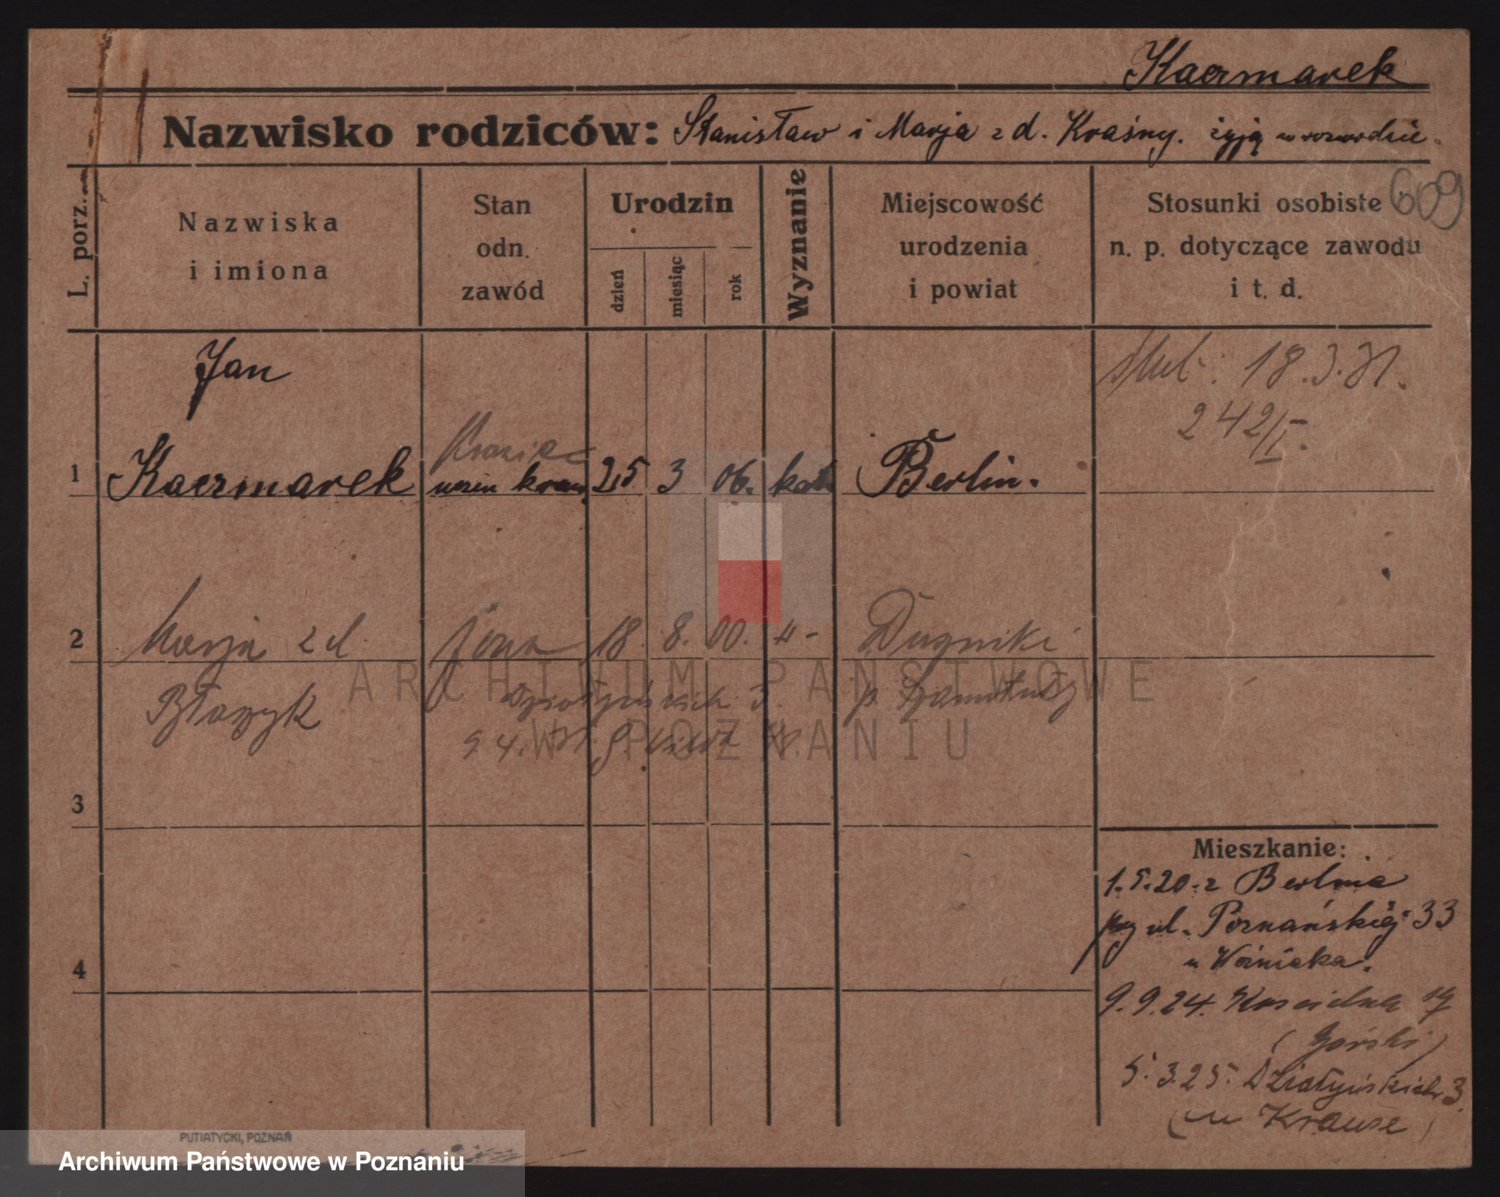 Kaczmarek
Nazwisko rodziców: Stanisław i Marja z d. Kraśny. żyją w rozwodzie.
609
L. porz.
Nazwiska i imiona
Stan odn. zawód
Urodzin
dzień
miesiąc
rok
Wyznanie
Miejscowość urodzenia i powiat
Stosunki osobiste n. p. dotyczące zawodu i t. d.
Jan
18.3.31.
242/I.
Krawiec
1 Kaczmarek uczeń kraw. 25 3 06. kath Berlin.
2 Marja z d. żona 18. 8. 00. -"- Duszniki
Błaszyk Działyńskich 3. p. Szamotuły
9.4.
3
4
Mieszkanie:
1.5.20. z Berlina
przy ul. Poznańskiej 33
u Woźniaka.
9.9.24. Kościelna 19
(Górski)
5.3.25. Działyńskich 3.
(u Krause)
PUTIATYCKI, POZNAŃ
ARCHIWUM PAŃSTWOWE
W POZNANIU
Archiwum Państwowe w Poznaniu